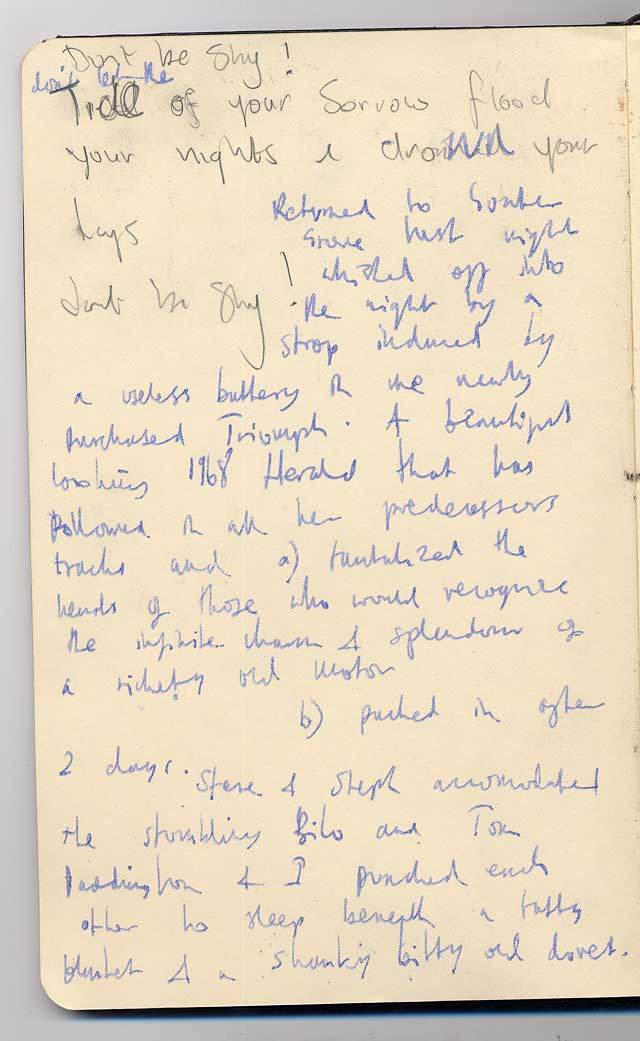 Dont be Shy!
don't let the
Tide of your Sorrow flood
your nights & drown your
days
Dont be Shy!
Returned to Souter
Grove last night
whisked off into
the night by a
strop induced by
a useless battery in the newly
purchased Triumph. A beautiful
looking 1968 Herald that has
followed in all her predecessors
tracks and a) tantalized the
heads of those who would recognize
the infinite charm & splendour of
a rickety old motor
b) packed in after
2 days. Steve & Steph accomodated
the stumbling Bilo and Tom
Paddington & I punched each
other to sleep beneath a tatty
blanket & a skanky bitty old dovet.